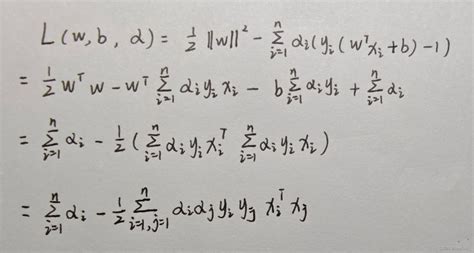 L(w, b, α) = 1/2 ||w||² - ∑_{i=1}^{n} αᵢ(yᵢ(wᵀxᵢ + b) - 1)
= 1/2 wᵀw - wᵀ ∑_{i=1}^{n} αᵢyᵢxᵢ - b ∑_{i=1}^{n} αᵢyᵢ + ∑_{i=1}^{n} αᵢ
= ∑_{i=1}^{n} αᵢ - 1/2 (∑_{i=1}^{n} αᵢyᵢxᵢᵀ ∑_{i=1}^{n} αᵢyᵢxᵢ)
= ∑_{i=1}^{n} αᵢ - 1/2 ∑_{i=1,j=1}^{n} αᵢαⱼyᵢyⱼ xᵢᵀxⱼ